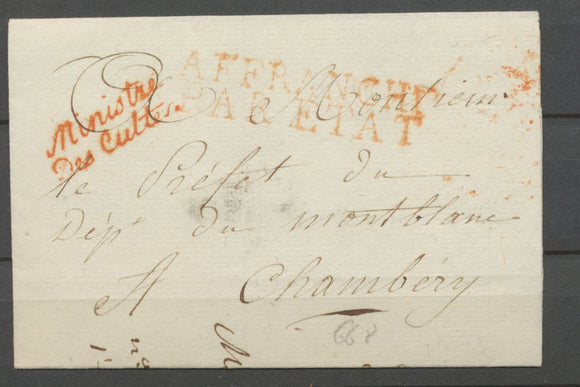 Ministre
Des Cultes.
AFFRANCHI
PAR ETAT
A Monsieur
le Préfet du
Dépt. du montblanc
A Chambéry